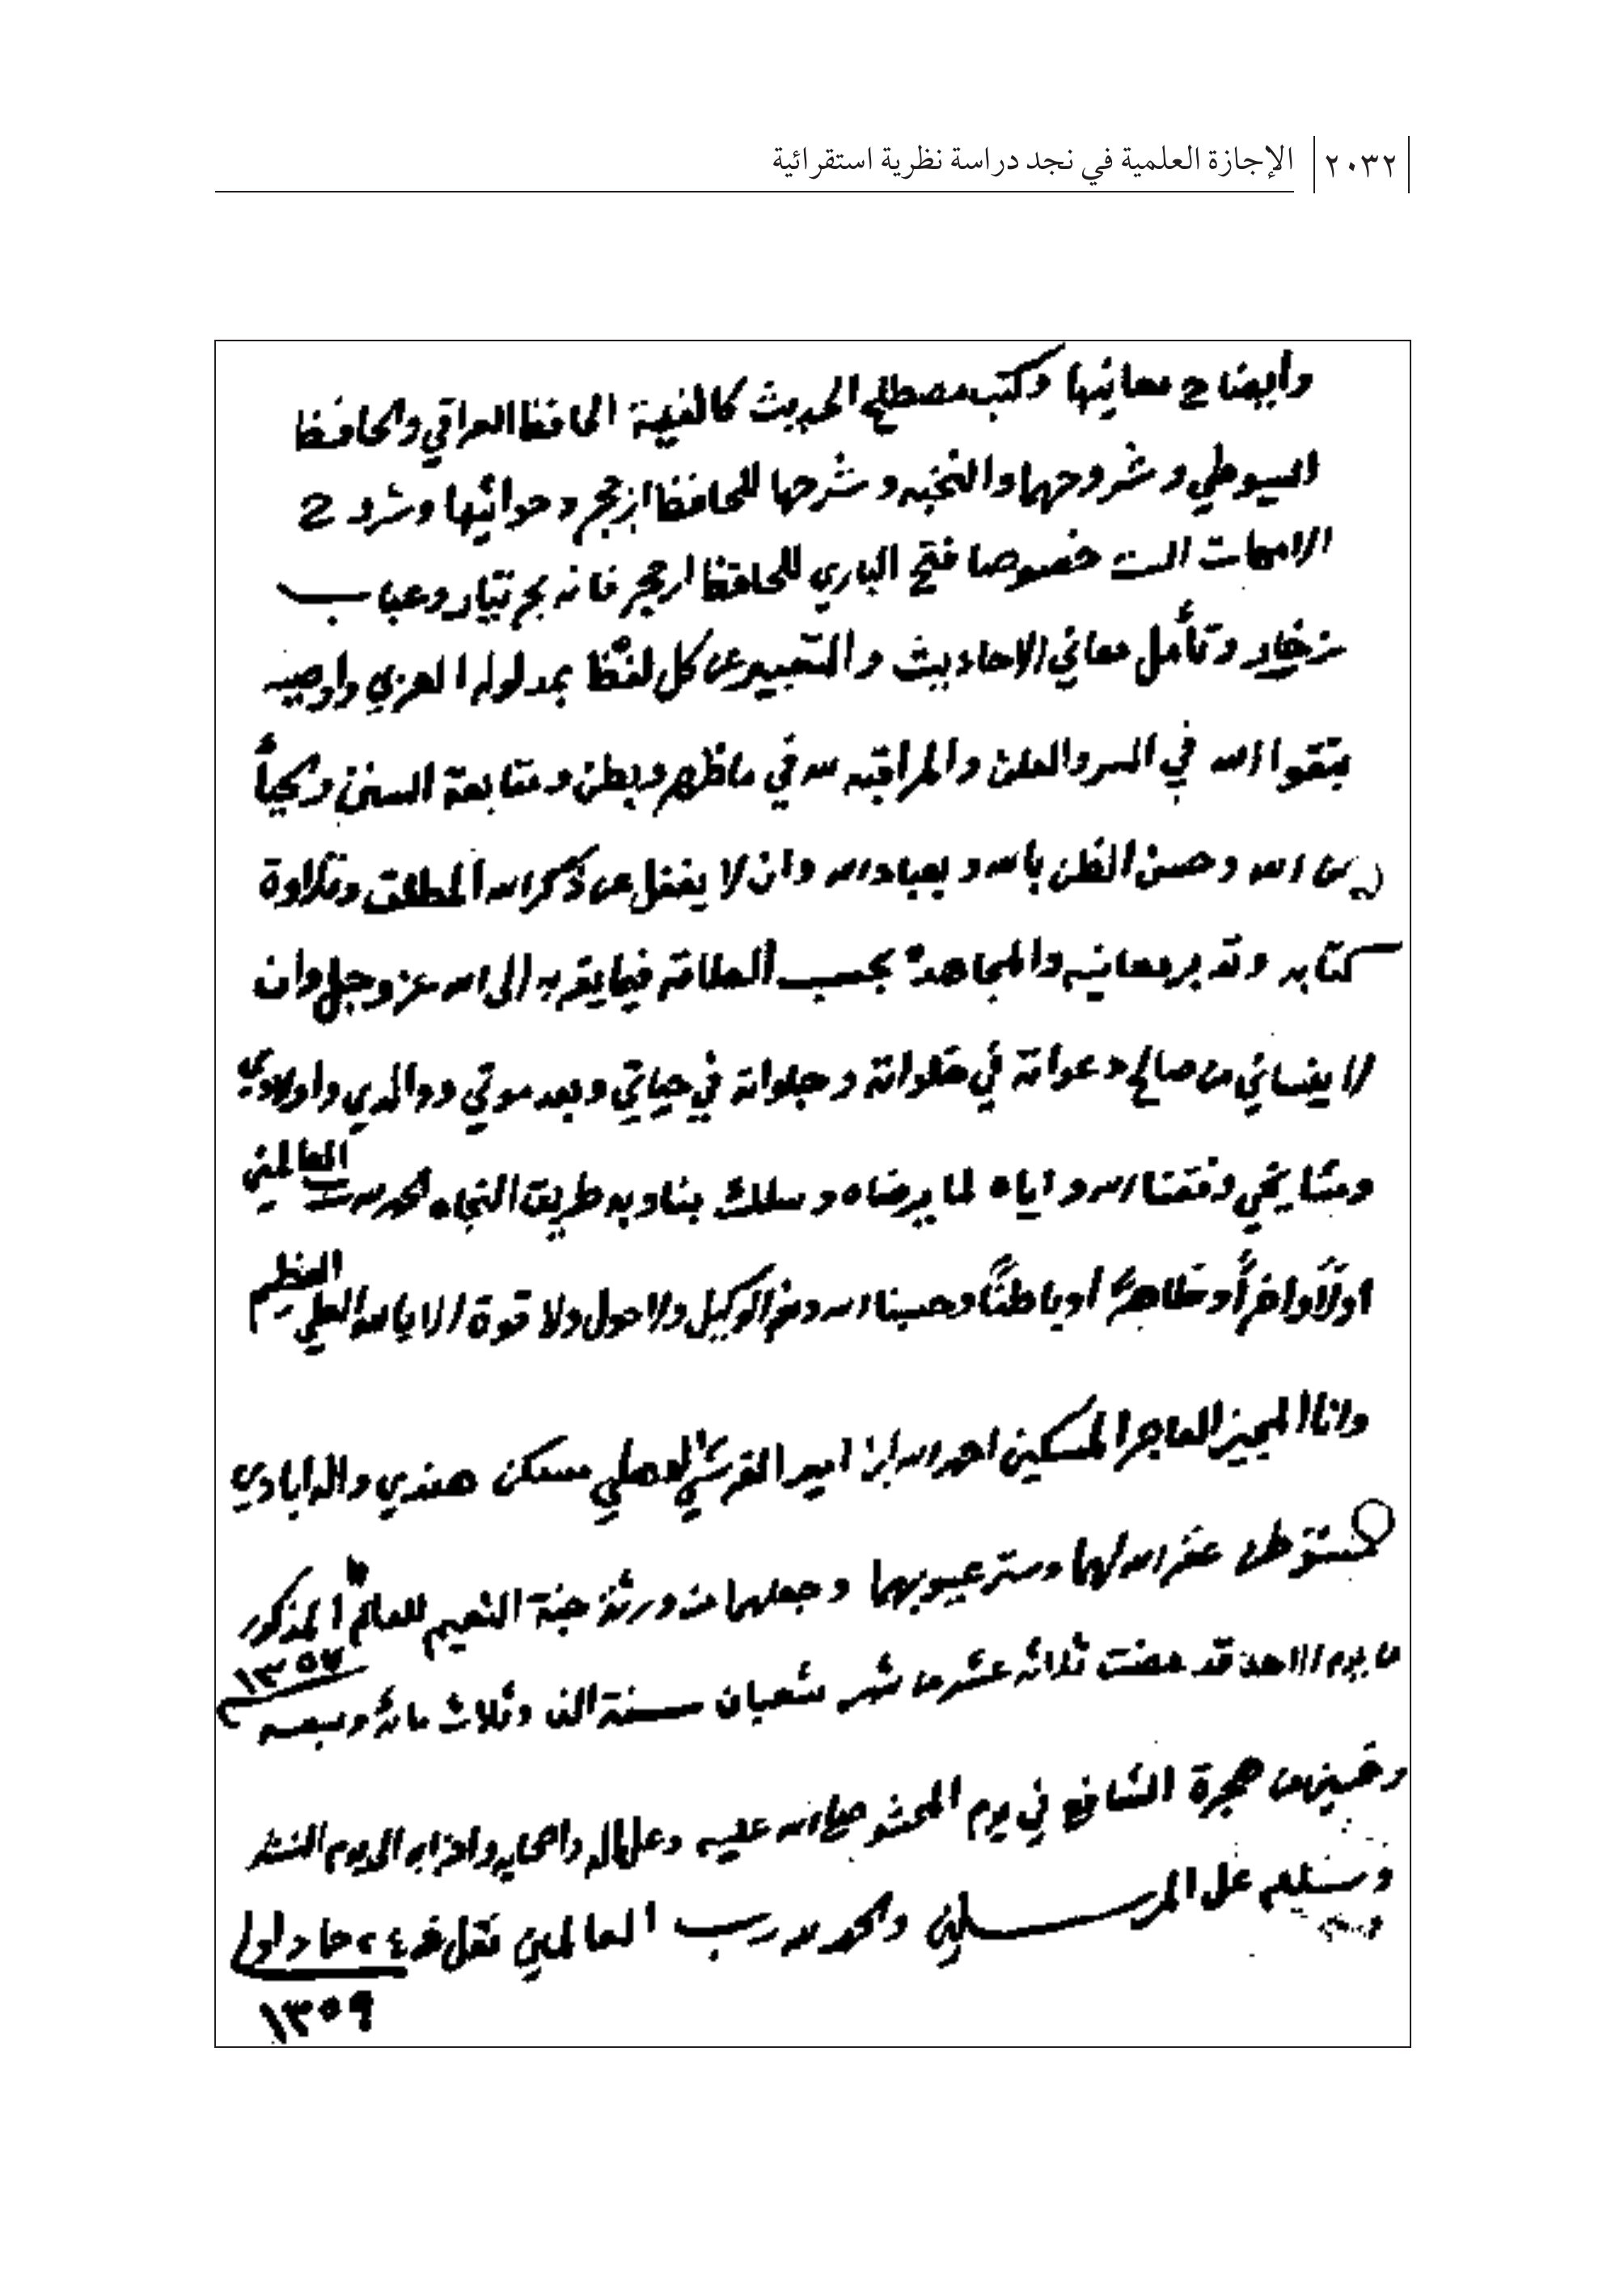 ٢٠٣٢ الإجازة العلمية في نجد دراسة نظرية استقرائية
وأيضاح معانيها وكتب مصطلح الحديث كالفية الحافظ العراقي والحافظ
السيوطي وشروحهما والنخبه وشرحها للحافظ ابن حجر وحواشيها وشروح
الامهات الست خصوصا فتح الباري للحافظ ابن حجر فانه بحر تيار وعباب
زخار وتأمل معاني الاحاديث والتعبير عن كل لفظ بمدلوله العربي واوصيه
بتقوا الله في السر والعلن والمراقبه لله في ما ظهر وبطن ومتابعة السنن
من الله وحسن الظن بالله وبعباد الله وان لا يغفل عن ذكر الله المطلق وتلاوة
كتابه وتدبر معانيه والمجاهدة بحسب الطاقة فيما يقربه الى الله عز وجل وان
لا ينساني من صالح دعواته في خلواته وجلواته في حياتي وبعد موتي ووالدي واولادي
ومشايخي وفقنا الله واياه لما يرضاه وسلك بنا وبه طريق النجاه الحمد لله رب العالمين
اولاً واخراً وظاهراً وباطناً وحسبنا الله ونعم الوكيل ولا حول ولا قوة الا بالله العلي العظيم
وانا المجيز العاجز المسكين احمد الله ابن امير القرشي الدهلي مسكن هندي
غفر الله لهما وستر عيوبهما وجعلهما من ورثة جنة النعيم للعالم المذكور
من يوم الاحد قد مضت ثلاثه عشر من شهر شعبان سنة الف وثلاث مائة وسبعه
١٣٥٧
وخمسين من هجرة الشافع في يوم المحشر صلى الله عليه وعلى اله واصحابه واحزابه الى يوم النشر
وسلام على المرسلين والحمد لله رب العالمين نقل في ٢٤ جماد اولى
١٣٥٩